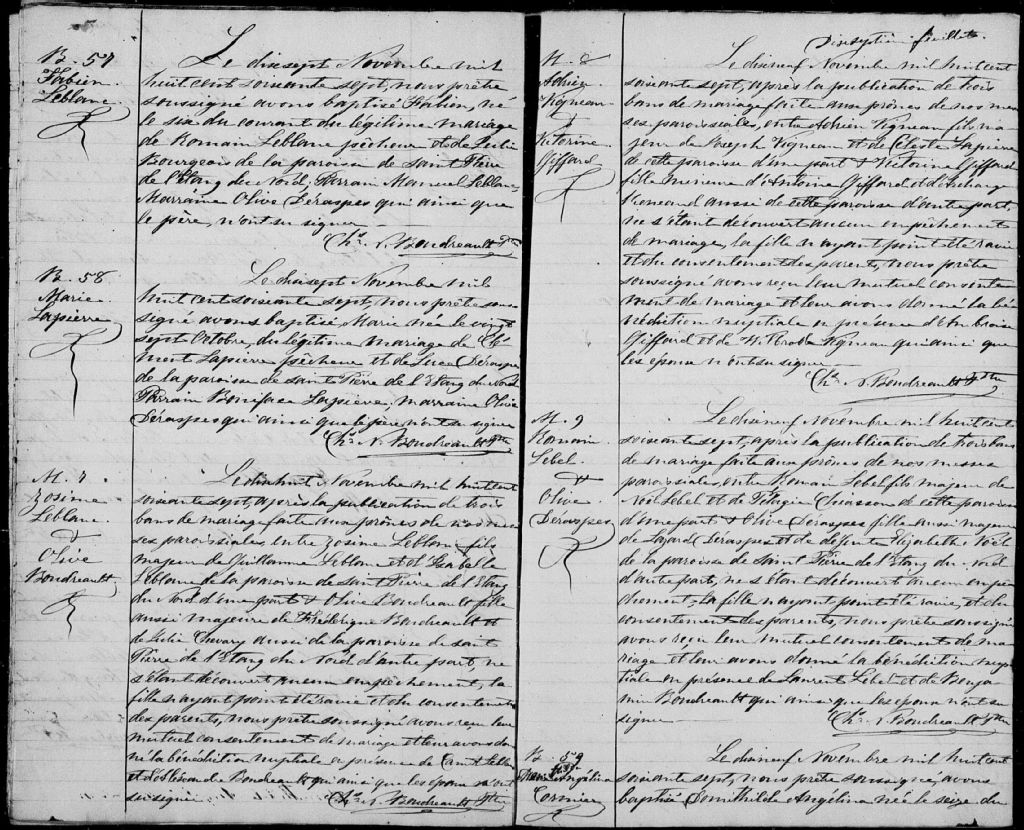 B. 57
Fabien
Leblanc
Le dixsept Novembre mil
huit cent soixante sept, nous prêtre
soussigné avons baptisé Fabien, né
le six du courant du légitime mariage
de Romain Leblanc pêcheur et de Julie
Bourgeois de la paroisse de Saint Pierre
de l'Etang du Nord, Parrain Manuel Leblanc
Marraine Olive Déraspes qui ainsi que
le père, n'ont su signer
Chs. N. Boudreault Ptre
B. 58
Marie
Lapierre
Le dixsept Novembre mil
huit cent soixante sept, nous prêtre sous
signé avons baptisé Marie née le vingt
sept Octobre, du légitime mariage de Clé
ment Lapierre pêcheur et de Luce Déraspes
de la paroisse de saint Pierre de l'Etang du Nord
Parrain Boniface Lapierre, marraine Olive
Déraspes qui ainsi que le père n'ont su signer
Chs. N. Boudreault Ptre
M. 7
Zosime
Leblanc
&
Olive
Boudreault
Le dixhuit Novembre mil huit cent
soixante sept, après la publication de trois
bans de mariage faite aux prônes de nos mes
ses paroissiales, entre Zosime Leblanc fils
majeur de Guillaume Leblanc et d'Isabelle
Leblanc de la paroisse de Saint Pierre de l'Etang
du Nord d'une part & Olive Boudreault fille
aussi majeure de Frédérique Boudreault et
de Julie Chevary aussi de la paroisse de saint
Pierre de l'Etang du Nord d'autre part, ne
s'étant découvert aucun empêchement, la
fille n'ayant point été ravie et du consentement
des parents, nous prêtre soussigné avons reçu leur
mutuel consentement de mariage et leur avons don
né la bénédiction nuptiale en présence de Leblanc
et de Boudreault qui ainsi que les époux n'ont
su signer
Chs. N. Boudreault Ptre
feuillet
M. 8
Adrien
Vigneau
&
Victorine
Giffard
Le dixneuf Novembre mil huit cent
soixante sept, après la publication de trois
bans de mariage faite aux prônes de nos mes
ses paroissiales, entre Adrien Vigneau fils ma
jeur de Joseph Vigneau et de Céleste Lapierre
de cette paroisse d'une part & Victorine Giffard
fille mineure d'Antoine Giffard et d'Archange
Renaud aussi de cette paroisse d'autre part,
ne s'étant découvert aucun empêchement
de mariage, la fille n'ayant point été ravie
et du consentement des parents, nous prêtre
soussigné avons reçu leur mutuel consente
ment de mariage et leur avons donné la bé
nédiction nuptiale en présence d'Ambroise
Giffard et de Vigneau qui ainsi que
les époux n'ont su signer
Chs. N. Boudreault Ptre
M. 9
Romain
Lebel
&
Olive
Déraspes
Le dixneuf Novembre mil huit cent
soixante sept, après la publication de trois bans
de mariage faite aux prônes de nos messes
paroissiales, entre Romain Lebel fils majeur de
Noël Lebel et de Pélagie Chiasson de cette paroisse
d'une part & Olive Déraspes fille aussi majeure
de Lazard Déraspes et de défunte Elizabeth Noël
de la paroisse de Saint Pierre de l'Etang du Nord
d'autre part, ne s'étant découvert aucun empê
chement, la fille n'ayant point été ravie, et du
consentement des parents, nous prêtre soussigné
avons reçu leur mutuel consentement de ma
riage et leur avons donné la bénédiction nup
tiale en présence de Laurent Lebel et de Benja
min Boudreault qui ainsi que les époux n'ont su
signer
Chs. N. Boudreault Ptre
B. 59
Angélina
Cormier
Le dixneuf Novembre mil huit cent
soixante sept, nous prêtre soussigné, avons
baptisé Domithilde Angélina née le seize du